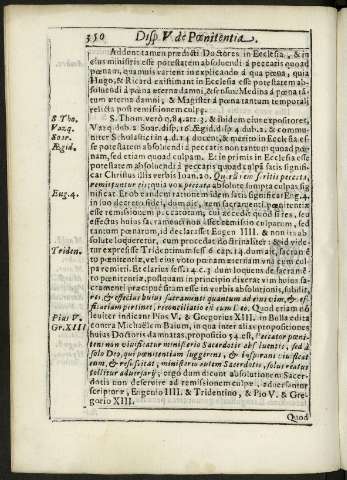 350 Disp. V. de Pœnitentia.
Addunt tamen prædicti Doctores in Ecclesia, & in
eius ministris esse potestatem absoluendi à peccatis quoad
pœnam, quamuis varient in explicando à qua pœna, quia
Hugo, & Ricard existimant in Ecclesia esse potestatem ab-
soluendi à pœna æterna damni, & sensus: Medina à pœna tã-
tum æterna damni, & Magister à pœna tantum temporali
relicta post remissionem culpę.
S. Thom. verò q. 84. art. 3. & ibidem eius expositores,
S Tho.
Vazq. dub. 2 Suar. disp. 19. Ægid. disp 4 dub. 2. & commu-
Vazq.
niter Scholastic. in 4. d. 14 docent, & meritò in Ecclesia es-
Soar.
se potestatem absoluendi à peccatis non tantum quoad pœ-
Ægid.
nam, sed etiam quoad culpam. Et in primis in Ecclesia esse
potestatem absoluendi à peccatis quoad culpã satis signifi-
cat Christus illis verbis Ioan. 20. Quorum remiseritis peccata,
remittuntur eis; quia vox peccata absolutè sumpta culpas sig-
nificat Et ob eandem rationem idē satis significat Eug. 4.
Eug. 4.
in suo decreto fidei, dum ait, effectum pœnitentiæ
esse remissionem peccatorum; cui accedit quòd si res, seu
effectus huius sacramenti non esset remissio culparum, sed
tantum pœnarum, id declarasset Eugen IIII. & non ita ab-
solutè loqueretur, cum procedat doctrinaliter: & id vide-
tur expressisse Tridentinum sess 6 cap. 14. dum ait, sacramēto
Triden.
pœnitentiæ, vel eius voto pœnam æternam vnà cum culpa
remitti. Et clarius sess. 14 c. 3 dum loquens de sacramē-
to pœnitentiæ, postquam in principio dixerat vim huius sa-
cramenti præcipuè sitam esse in verbis absolutionis, subdit,
rei, & effectus huius sacramenti quantum ad eius vim, & ef-
ficatiam pertinet, reconciliatio est cum Deo. Quod etiam nõ
leuiter indicant Pius V. & Gregorius XIII. in Bulla edita
Pius V.
contra Michaëlem Baium, in qua inter alias propositiones
Gr. XIII
huius Doctoris damnatas, propositio 54. est, Peccator pœni-
tens non viuificatur ministerio Sacerdotis absoluentis, sed à
solo Deo, qui pœnitentiam suggerens, & inspirans viuificat
eum, & resuscitat, ministerio autem Sacerdotis, solus reatus
tollitur aduersarij; ergo dum dicunt absolutionem Sacer-
dotis non deseruire ad remissionem culpæ, aduersantur
scripturæ, Eugenio IIII. & Tridentino, & Pio V. & Gre-
gorio XIII.
Quod